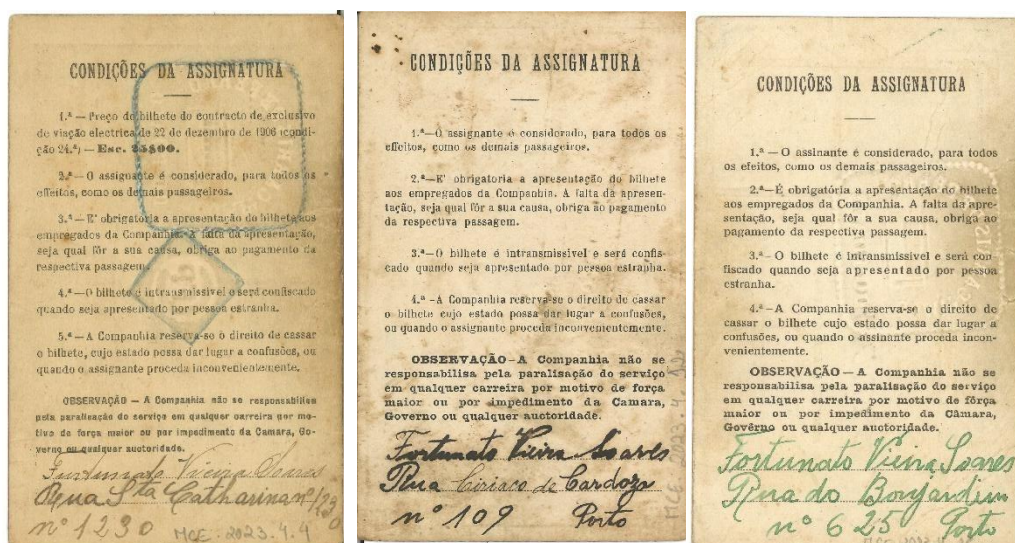 CONDIÇÕES DA ASSIGNATURA
1.ª — Preço do bilhete do contracto de exclusivo
de viação electrica de 22 de dezembro de 1906 (condi-
ção 24.ª) — Esc. 25$00.
2.ª — O assignante é considerado, para todos os
effeitos, como os demais passageiros.
3.ª — E' obrigatoria a apresentação do bilhete aos
empregados da Companhia. A falta da apresentação,
seja qual fôr a sua causa, obriga ao pagamento da
respectiva passagem.
4.ª — O bilhete é intransmissivel e será confiscado
quando seja apresentado por pessoa estranha.
5.ª — A Companhia reserva-se o direito de cassar
o bilhete, cujo estado possa dar lugar a confusões, ou
quando o assignante proceda inconvenientemente.
OBSERVAÇÃO — A Companhia não se responsabilisa
pela paralisação do serviço em qualquer carreira por mo-
tivo de força maior ou por impedimento da Camara, Go-
verno ou qualquer auctoridade.
Fortunato Vieira Soares
Rua Sta Catharina nº 1230
nº 1230
MCE. 2023.4.4
CONDIÇÕES DA ASSIGNATURA
1.ª — O assignante é considerado, para todos os
effeitos, como os demais passageiros.
2.ª — E' obrigatoria a apresentação do bilhete
aos empregados da Companhia. A falta da apresen-
tação, seja qual fôr a sua causa, obriga ao pagamento
da respectiva passagem.
3.ª — O bilhete é intransmissivel e será confis-
cado quando seja apresentado por pessoa estranha.
4.ª — A Companhia reserva-se o direito de cassar
o bilhete cujo estado possa dar lugar a confusões,
ou quando o assignante proceda inconvenientemente.
OBSERVAÇÃO — A Companhia não se
responsabilisa pela paralisação do serviço
em qualquer carreira por motivo de força
maior ou por impedimento da Camara,
Governo ou qualquer auctoridade.
Fortunato Vieira Soares
Rua Ciriaco de Cardozo
nº 109 Porto
CONDIÇÕES DA ASSIGNATURA
1.ª — O assinante é considerado, para todos
os efeitos, como os demais passageiros.
2.ª — É obrigatória a apresentação do bilhete
aos empregados da Companhia. A falta da apre-
sentação, seja qual fôr a sua causa, obriga ao
pagamento da respectiva passagem.
3.ª — O bilhete é intransmissivel e será con-
fiscado quando seja apresentado por pessoa
estranha.
4.ª — A Companhia reserva-se o direito de
cassar o bilhete cujo estado possa dar lugar a
confusões, ou quando o assinante proceda incon-
venientemente.
OBSERVAÇÃO — A Companhia não se
responsabilisa pela paralisação do serviço
em qualquer carreira por motivo de fôrça
maior ou por impedimento da Câmara,
Govêrno ou qualquer autoridade.
Fortunato Vieira Soares
Rua do Bonjardim
nº 625 Porto